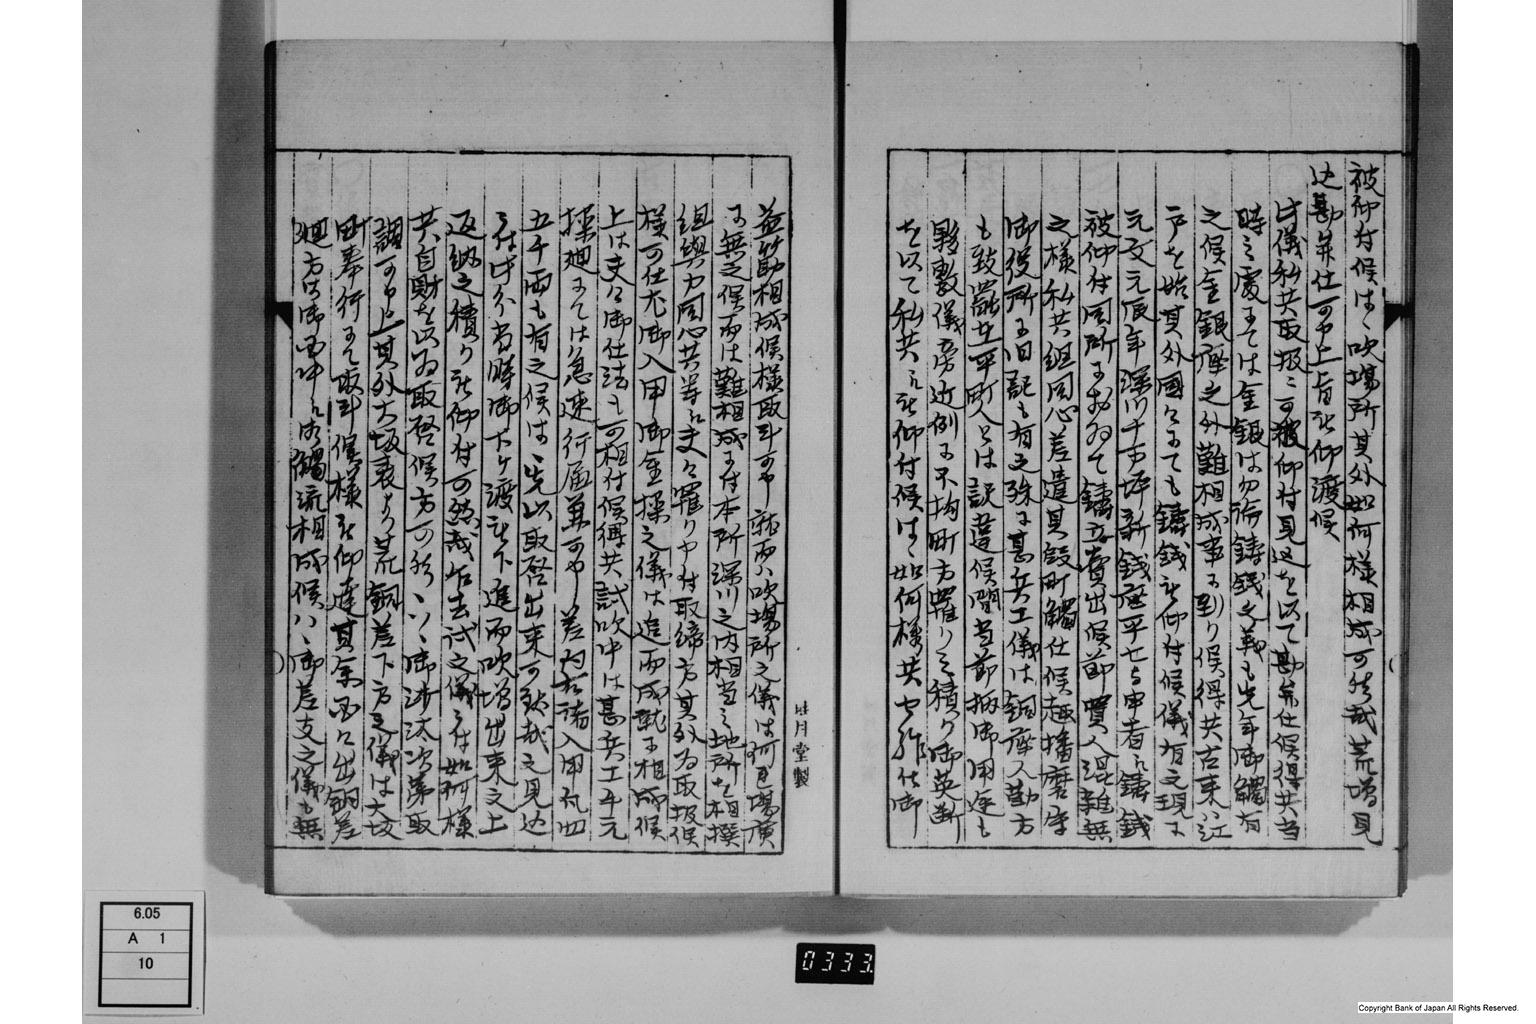 被仰付候はゝ吹場所其外如何様相成可然哉荒増見
込勘弁仕可申上旨被仰渡候
此儀私共取扱ニ可被仰付見込を以て勘弁仕候得共当
時之處にては金銀は勿論鋳銭之義も先年御觸有
之候金銀座之外難相成事に到り候得共古来ハ江
戸を始其外國々にても鋳銭被仰付候儀有之現に
元文元辰年深川十万坪新銭座平七与申者江鋳銭
被仰付同所におゐて鋳立賣出候節買人混雑無
之様私共組同心差遣其段町觸仕候趣播磨守
御役所に旧記も有之殊に甚兵工儀は銅座入勘方
も致罷在平町人とは訳違候間当節柄御用途も
夥敷儀旁近例に不拘町方罷り之積り御英断
を以て私共江被仰付候はゝ如何様共セ御
益筋相成候様取斗可申就而ハ吹場所之儀は何連場廣
に無之候而は難相成に付本所深川之内相当之地所を相撰
組與力同心共等江夫々罷り申付取締方其外為取扱候
様可仕尤御入用御金操之儀は追而成就に相成候
上は夫々御仕法も可相付候得共試吹中は甚兵工手元
操廻にては急速行届兼可申差向右諸入用凡四
五千両も有之候はゝ先以取啓出来可致哉之見込
ニ付此分当時御下ケ渡被下進而吹増出来之上
返納之積り被仰付可然哉乍去試之儀ニ付如何様
共自財を以為取啓候方可然ハゝ御沙汰次第取
調可申上其外大坂表より荒銅差下方之儀は大坂
町奉行にて取斗候様被仰達其余国々出銅差
廻方は御国中江御觸流相成候ハゝ御差支之儀も無
廿月堂製
6.05
A 1
10
0333.
Copyright Bank of Japan All Rights Reserved.